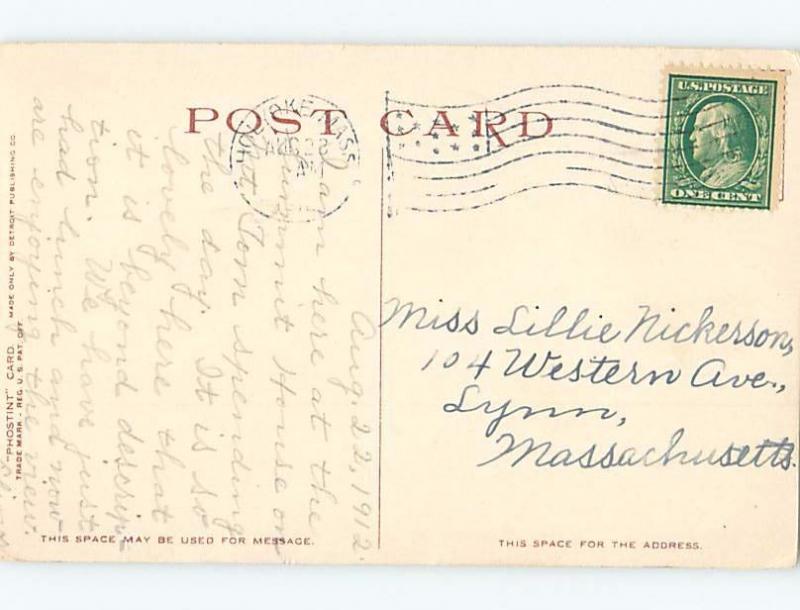 POST CARD
HOLYOKE, MASS.
AUG 22
U.S. POSTAGE
ONE CENT
Aug. 22, 1912.
I am here at the
Summit House on
Mt. Tom spending
the day. It is so
lovely here that
it is beyond descrip-
tion. We have just
had lunch and now
are enjoying the view.
Miss Lillie Nickerson,
104 Western Ave.,
Lynn,
Massachusetts.
THIS SPACE MAY BE USED FOR MESSAGE.
THIS SPACE FOR THE ADDRESS.
"PHOSTINT" CARD. MADE ONLY BY DETROIT PUBLISHING CO.
TRADE MARK - REG. U. S. PAT. OFF.